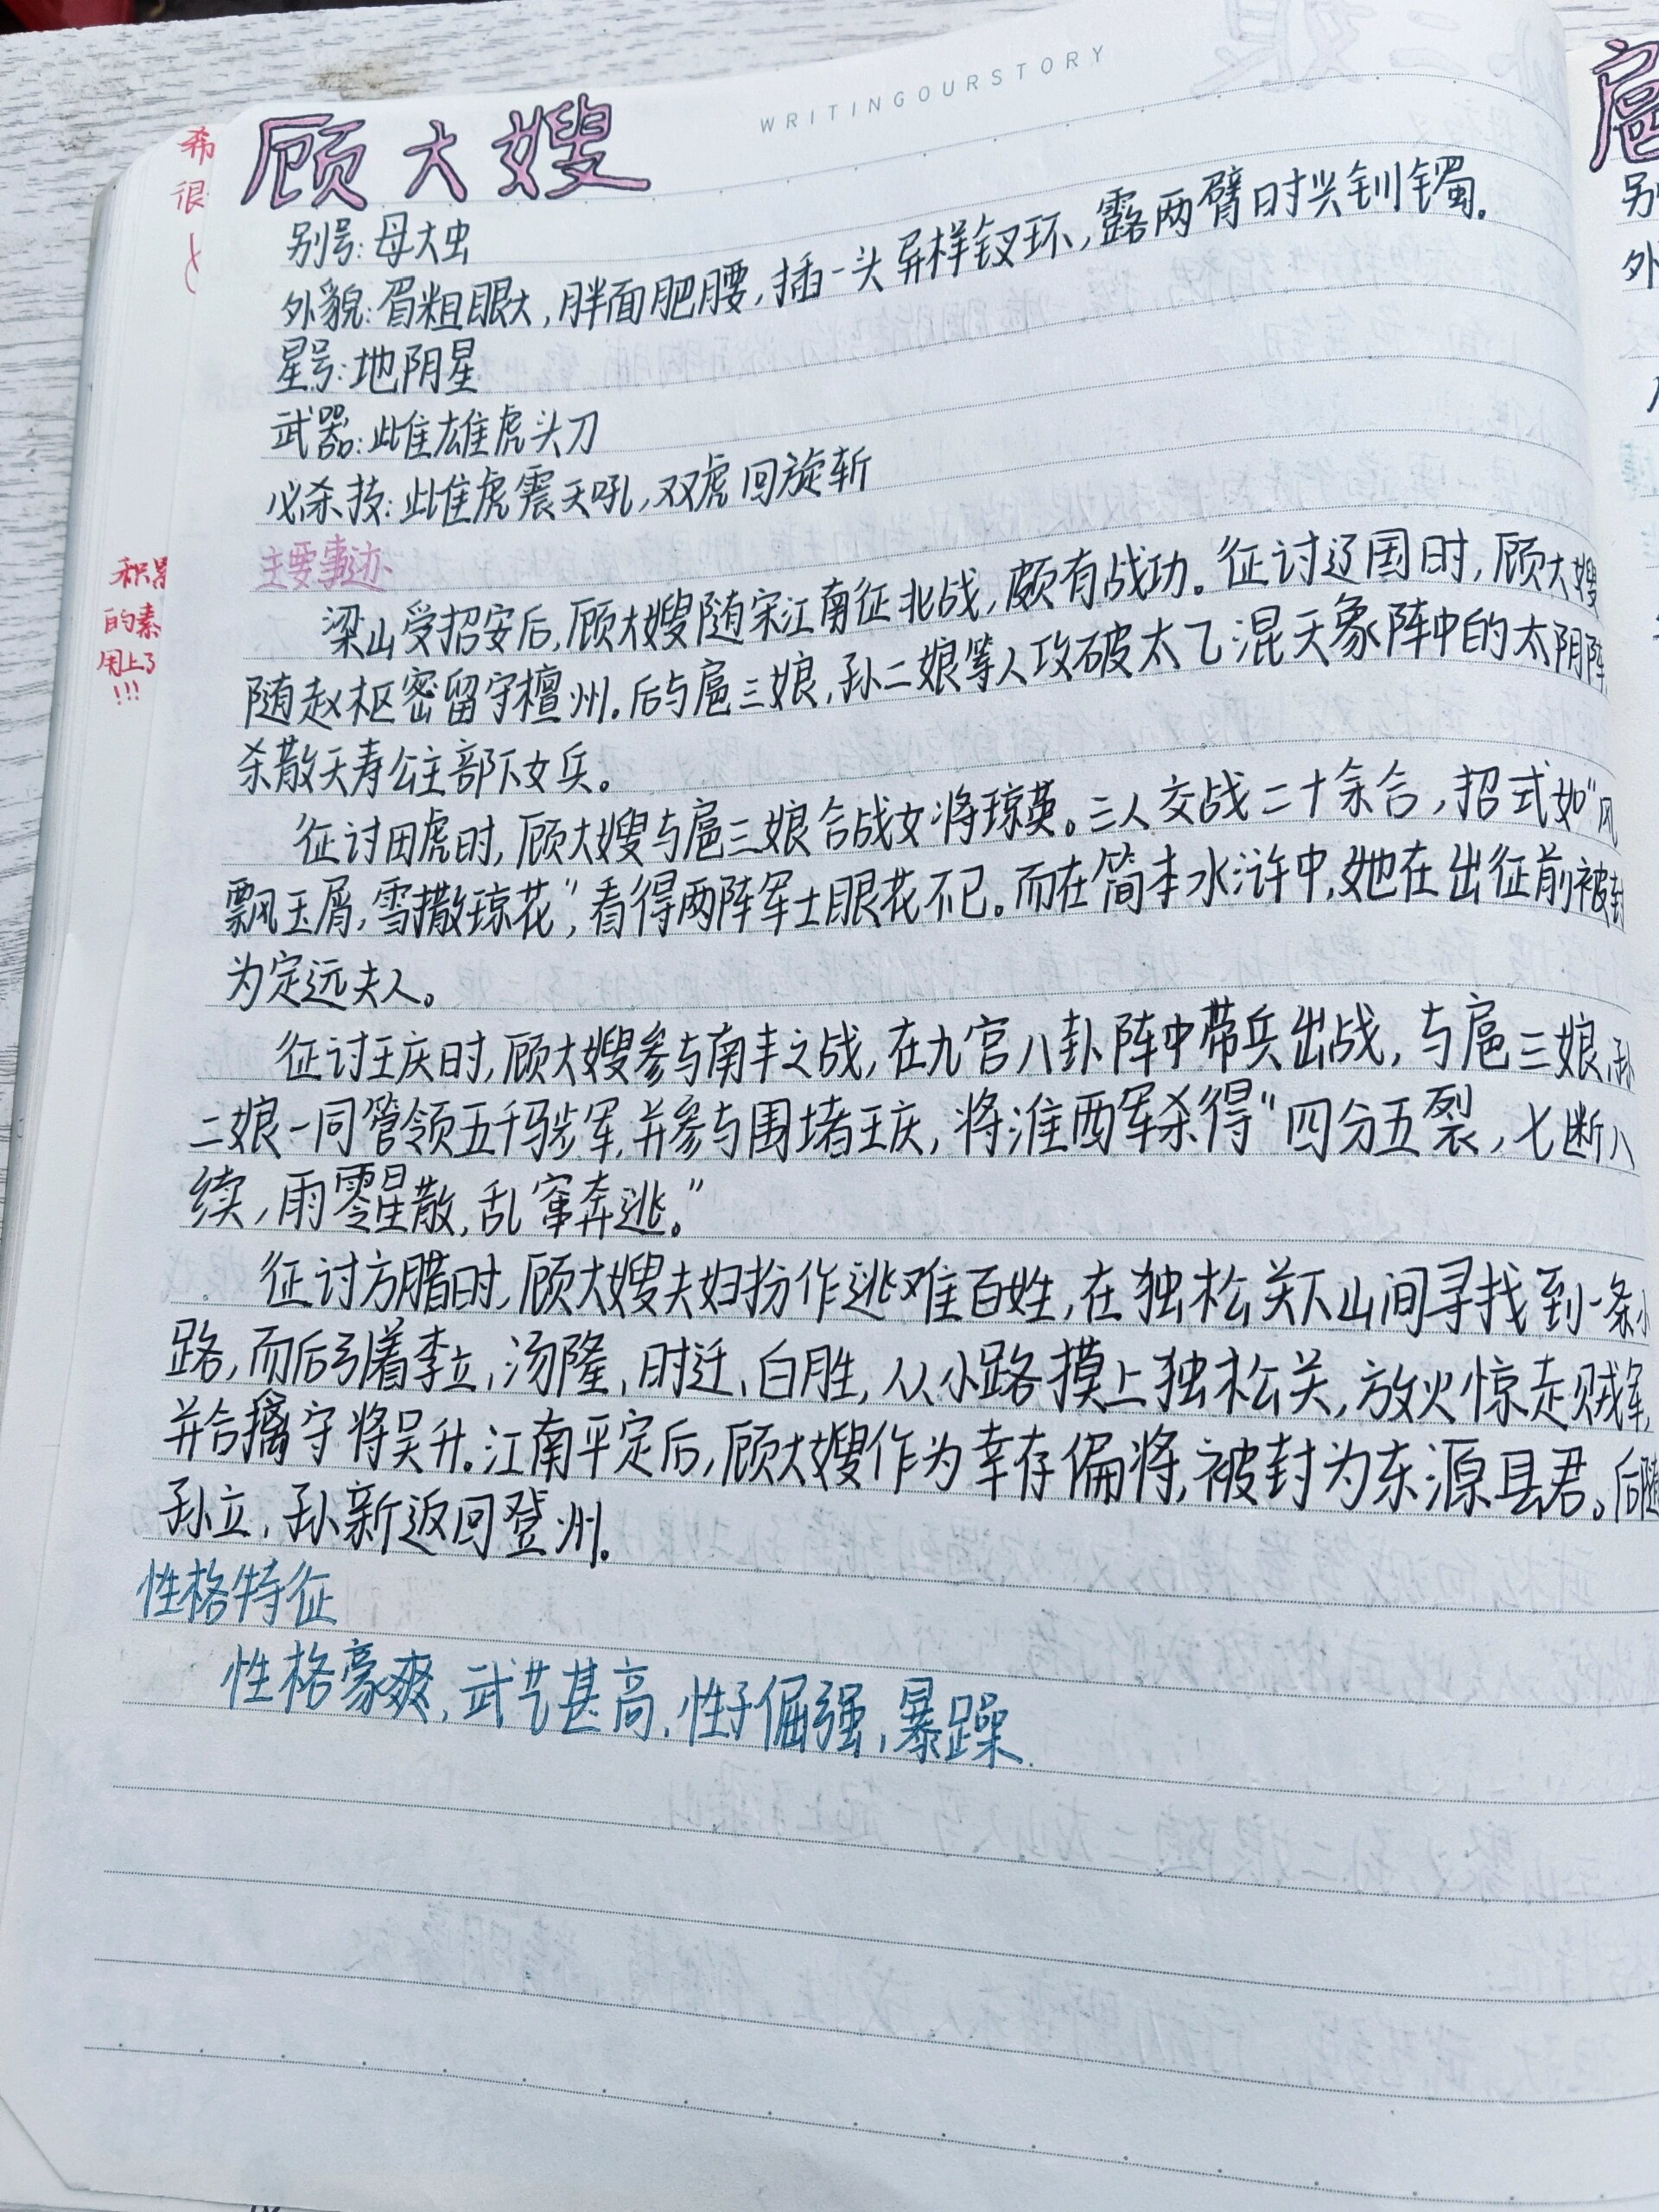 WRITINGOURSTORY
顾大嫂
别号:母大虫
外貌:眉粗眼大,胖面肥腰,插一头异样钗环,露两臂时兴钏镯。
星号:地阴星
武器:雌雄虎头刀
必杀技:雌虎震天吼,双虎回旋斩
主要事迹
梁山受招安后,顾大嫂随宋江南征北战,颇有战功。征讨辽国时,顾大嫂
随赵枢密留守檀州。后与扈三娘,孙二娘等人攻破太乙混天象阵中的太阴阵,
杀散天寿公主部下女兵。
征讨田虎时,顾大嫂与扈三娘合战女将琼英。三人交战二十余合,招式如“风
飘玉屑,雪撒琼花”,看得两阵军士眼花不已。而在简本水浒中,她在出征前被封
为定远夫人。
征讨王庆时,顾大嫂参与南丰之战,在九宫八卦阵中带兵出战,与扈三娘,孙
二娘一同管领五千马步军,并参与围堵王庆,将淮西军杀得“四分五裂,七断八
续,雨零星散,乱窜奔逃。”
征讨方腊时,顾大嫂夫妇扮作逃难百姓,在独松关下山间寻找到一条小
路,而后引着李立,汤隆、时迁、白胜,从小路摸上独松关,放火惊走贼军,
并合擒守将吴升。江南平定后,顾大嫂作为幸存偏将,被封为东源县君。后随
孙立,孙新返回登州。
性格特征
性格豪爽,武艺甚高,性子倔强,暴躁.
希
很
积累
的素
用上了
!!!
扈
别
外